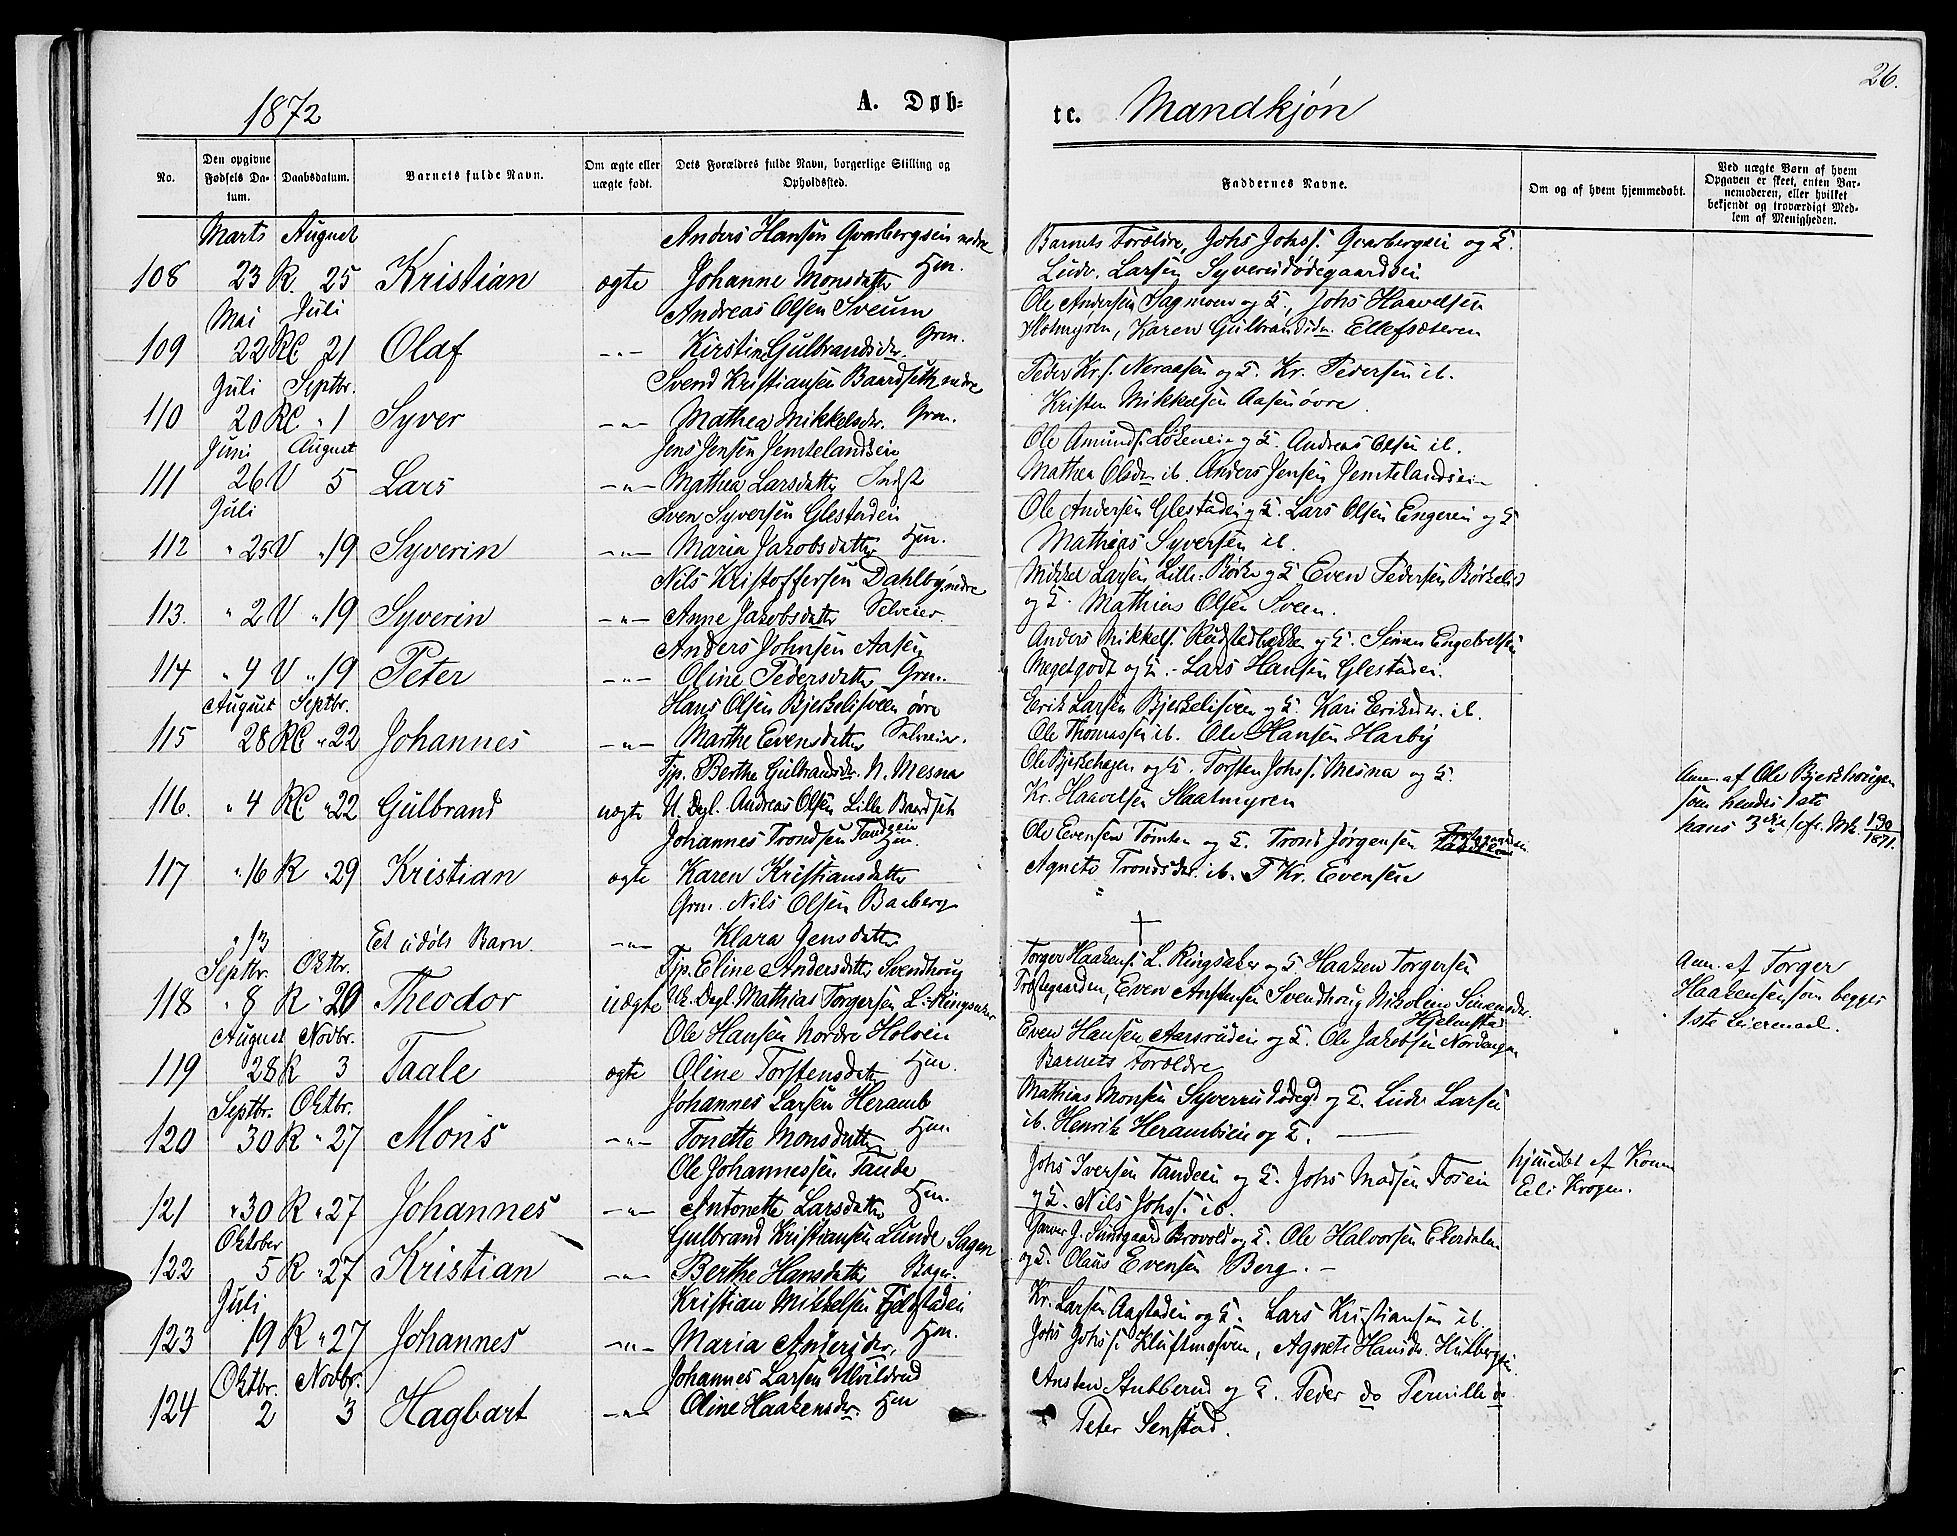 1872
A. Døb-
No.
Den opgivne Fødsels Da-tum.
Daabsdatum.
Barnets fulde Navn.
Om ægte eller uægte født.
Dets Forældres fulde Navn, borgerlige Stilling og Opholdssted.
Marts August Anders Hansen Qvarbergseien nedre
108 23 R. 25 Kristian ægte Johanne Monsdatter Hm.
Mai Juli Andreas Olsen Sveum
109 22 RC 21 Olaf -"- Kirstine Gulbrandsdr. Grm.
Juli Septbr. Svend Kristiansen Baardseth nedre
110 20 RC " 1 Syver -"- Mathea Mikkelsdr. Grm.
Juni August Jens Jensen Jemtelandseie
111 26 V 5 Lars -"- Mathea Larsdatter Indst
Juli Sven Syversen Glestadei
112 " 25 V " 19 Syverin -"- Maria Jakobsdatter Hm.
Nils Kristoffersen Dahlby nedre
113. " 2 V " 19 Syverin -"- Anne Jakobsdatter Selveier.
Anders Johnsen Aasen
114 " 4 V " 19 Peter -"- Oline Pedersdatter Grm.
August Septbr. Hans Olsen Bjerkelisveen øvre
115 28 RC " 22 Johannes -"- Marthe Evensdatter Selveier.
Tjp. Berthe Gulbrandsdr. N. Mesna
116. " 4 RC " 22 Gulbrand uægte U. Dagl. Andreas Olsen Lille Baardseth
Johannes Trondsen Tandeeie
117 " 16 R " 29 Kristian ægte Karen Kristiansdatter Hm.
Grm. Nils Olsen Baaberg
" 13 Et udøbt Barn. -"- Klara Jensdatter
Septbr. Oktbr. Tjp. Eline Andersdatter Svendhoug
118 " 8 R " 20 Theodor uægte Uk. Dagl. Mathias Torgersen L. Ringsaker
August Novbr. Ole Hansen Nordre Holoeie
119 28 R 3 Taale ægte Oline Torstensdatter Hm.
Septbr. Oktbr. Johannes Larsen Heramb
120 30 R " 27 Mons -"- Tonette Monsdatter Hm.
Ole Johannessen Tande
121 " 30 R " 27 Johannes -"- Antonette Larsdatter Hm.
Oktober Gulbrand Kristiansen Lunde Sagen
122 5 R " 27 Kristian -"- Berthe Hansdatter Bager.
Juli Kristian Mikkelsen Fjelstadeie
123 19 R " 27 Johannes -"- Maria Andersdr. Hm.
Oktbr. Novbr. Johannes Larsen Ulvildrud
124 2 3 Hagbart -"- Oline Haakensdr. Hm
te. Mandkjøn
26.
Faddernes Navne.
Om og af hvem hjemmedøbt.
Ved uægte Børn af hvem Opgaven er skeet, enten Bar-nemoderen, eller hvilket bekjendt og troværdigt Med-lem af Menigheden.
Barnets Forældre, Johs Johss. Qvarbergeie og K.
Ludv. Larsen Syverudødegaardseie
Ole Andersen Sagmoen og K, Johs Haavelsen
Slotmyren, Karen Gulbrandsdr. Ellefsæteren
Peder Kr.s. Neraasen og K. Kr. Pedersen ib.
Kristen Mikkelsen Aasen øvre.
Ole Amunds. Løkeneie og K. Andreas Olsen ib.
Mathea Olsdr ib. Anders Jensen Jemtelandseie
Ole Andersen Glestadeie og K. Lars Olsen Engereie og K
Mathias Syversen ib.
Mikkel Larsen Lille-Børke og K Even Pedersen Børkelid
og K. Mathias Olsen Sveen.
Anders Mikkels. Rudstedbakken og K. Simen Engebretsen
Megetgodt og K. - Lars Hansen Glestadei.
Erik Larsen Bjerkelisveen og K. Kari Eriksdr. ib.
Ole Thomassen ib. Ole Hansen Harby
Ole Bjerkehagen og K. Torsten Johss. Mesna og K.
Kr. Haavelsen Slaatmyren
Anm. af Ole Bjerkehougen
som hendes 1ste
hans 3die / cfr. No. 190/1871.
Ole Evensen Tomten og K. Trond Jørgensen
Agnete Trondsdr. ib. T Kr. Evensen
Torger Haakens. L. Ringsaker og K Haaken Torgersen
Præstegaarden, Even Anstensen Svendhoug Nikoline Simensdr.
Hjelmstad
Anm. af Torger
Haakensen som begges
1ste Leiermaal.
Even Hansen Aarsrudeie og K. Ole Jakobsen Nordengen
Barnets Forældre
Mathias Monsen Syverrudødegd og K. Ludv Larsen
ib. Henrik Herambeie og K.
Johs Iversen Tandeeie og K. Johs Madsen Foseie
og K. Nils Johss. ib.
hjmdbt af Kone
Eli Krogen.
Garver J. Sundgaard Brovold og K. Ole Halvorsen Ekerdalen
og K. Olaus Evensen Berg. -
Kr. Larsen Aagstadeie og K. Lars Kristiansen ib.
Johs Johss. Kluftmosveen, Agnete Hansdr. Hulbergeie
Ansten Stubberud og K. Peder do Pernille do
Peter Senstad.